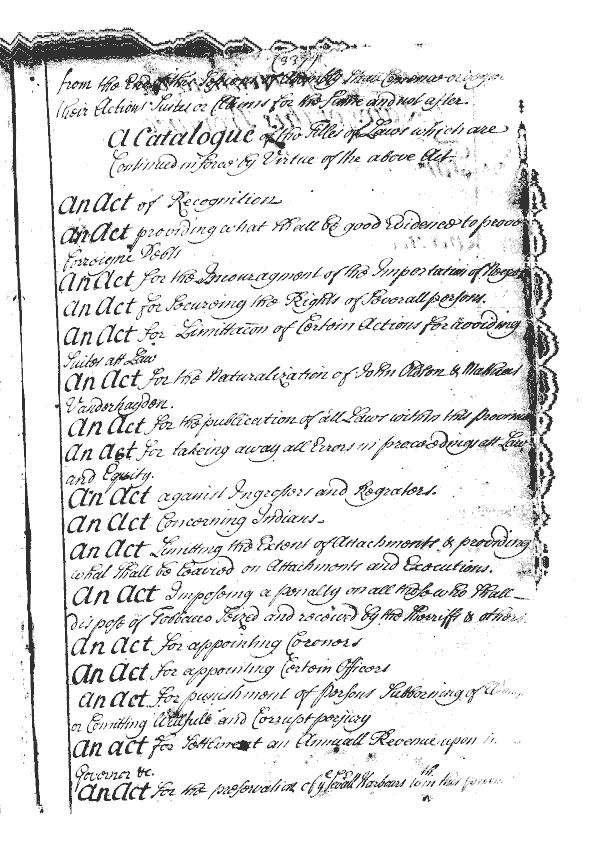 from the End of this Sessions of Assembly Shall Comence or
their Actions Suites or Claimes for the Same and not after.
A Catalogue of the Titles of Laws which are
Continued in force by Virtue of the above Act
An Act of Recognition
An Act providing what Shall be good Evidence to prove
fforreigne Debts
An Act for the Encouragment of the Importation of Negroes
An Act for Secureing the Rights of Severall persons.
An Act for Limittacon of Certein Actions for avoiding
Suites att Law
An Act for the Naturalization of John Oldson & Mathias
Vanderhayden.
An Act for the publication of all Laws within this Province
An Act for takeing away all Errors in proceedings att Law
and Equity.
An Act against Ingrossers and Regrators.
An Act Concerning Indians
An Act Limitting the Extent of Attachments & providing
what Shall be Leavied on Attachments and Executions.
An Act Imposeing a penalty on all those who Shall
dispose of Tobacco Seized and received by the Sherriffs & others
An Act for appointing Coroners
An Act for appointing Certein Officers
An Act for punishment of persons Suborning of
or Comitting Willfule and Corrupt perjury
An Act for Settlement an Annuall Revenue upon
Governor &c.
An Act for the preservation of ye Severall Harbours wth in this